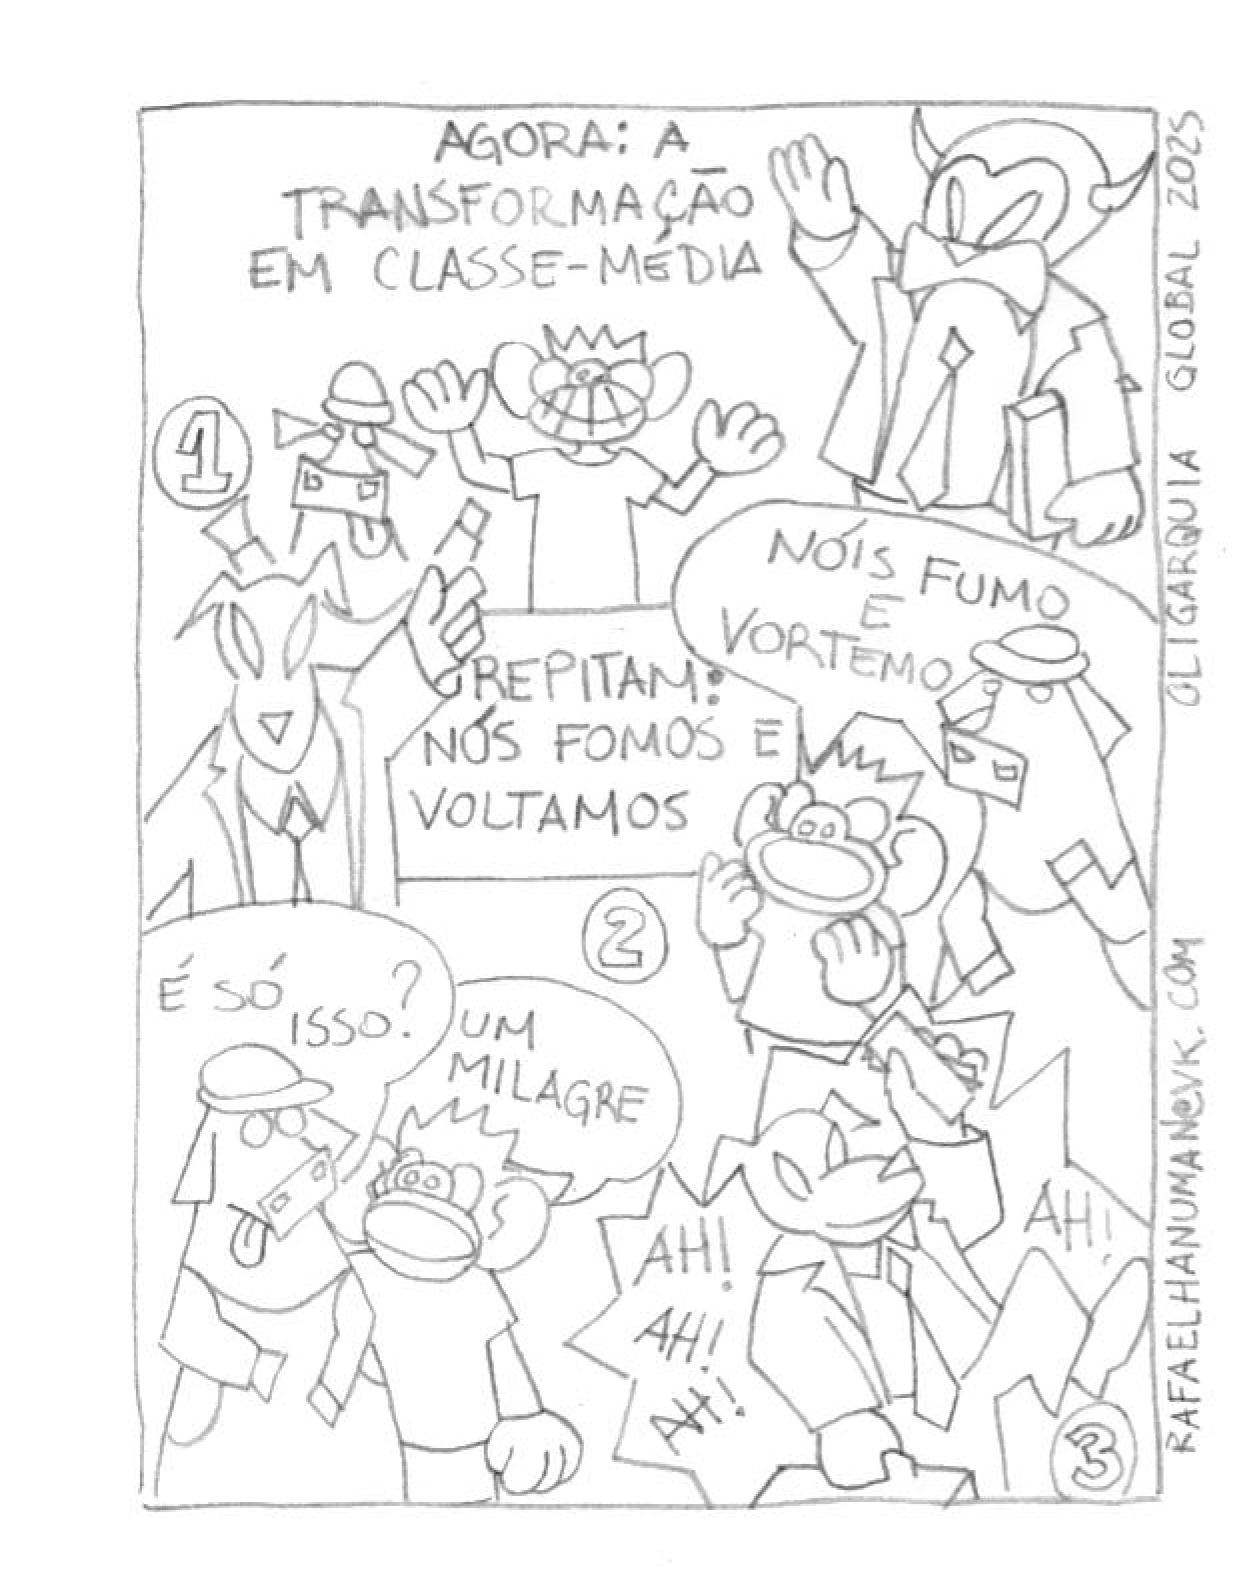 AGORA: A
TRANSFORMAÇÃO
EM CLASSE-MÉDIA
1
NÓIS FUMO
E
VORTEMO
REPITAM:
NÓS FOMOS E
VOLTAMOS
2
É SÓ
ISSO?
UM
MILAGRE
AH!
AH!
AH!
AH!
3
OLIGARQUIA GLOBAL 2025
RAFAELHANUMAN@VK.COM